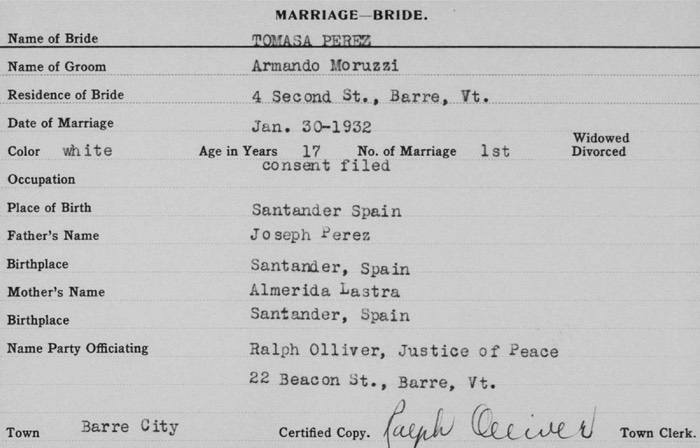 MARRIAGE—BRIDE.
Name of Bride TOMASA PEREZ
Name of Groom Armando Moruzzi
Residence of Bride 4 Second St., Barre, Vt.
Date of Marriage Jan. 30-1932
Widowed
Color white Age in Years 17 No. of Marriage 1st Divorced
consent filed
Occupation
Place of Birth Santander Spain
Father's Name Joseph Perez
Birthplace Santander, Spain
Mother's Name Almerida Lastra
Birthplace Santander, Spain
Name Party Officiating Ralph Olliver, Justice of Peace
22 Beacon St., Barre, Vt.
Town Barre City Certified Copy. Ralph Olliver Town Clerk.